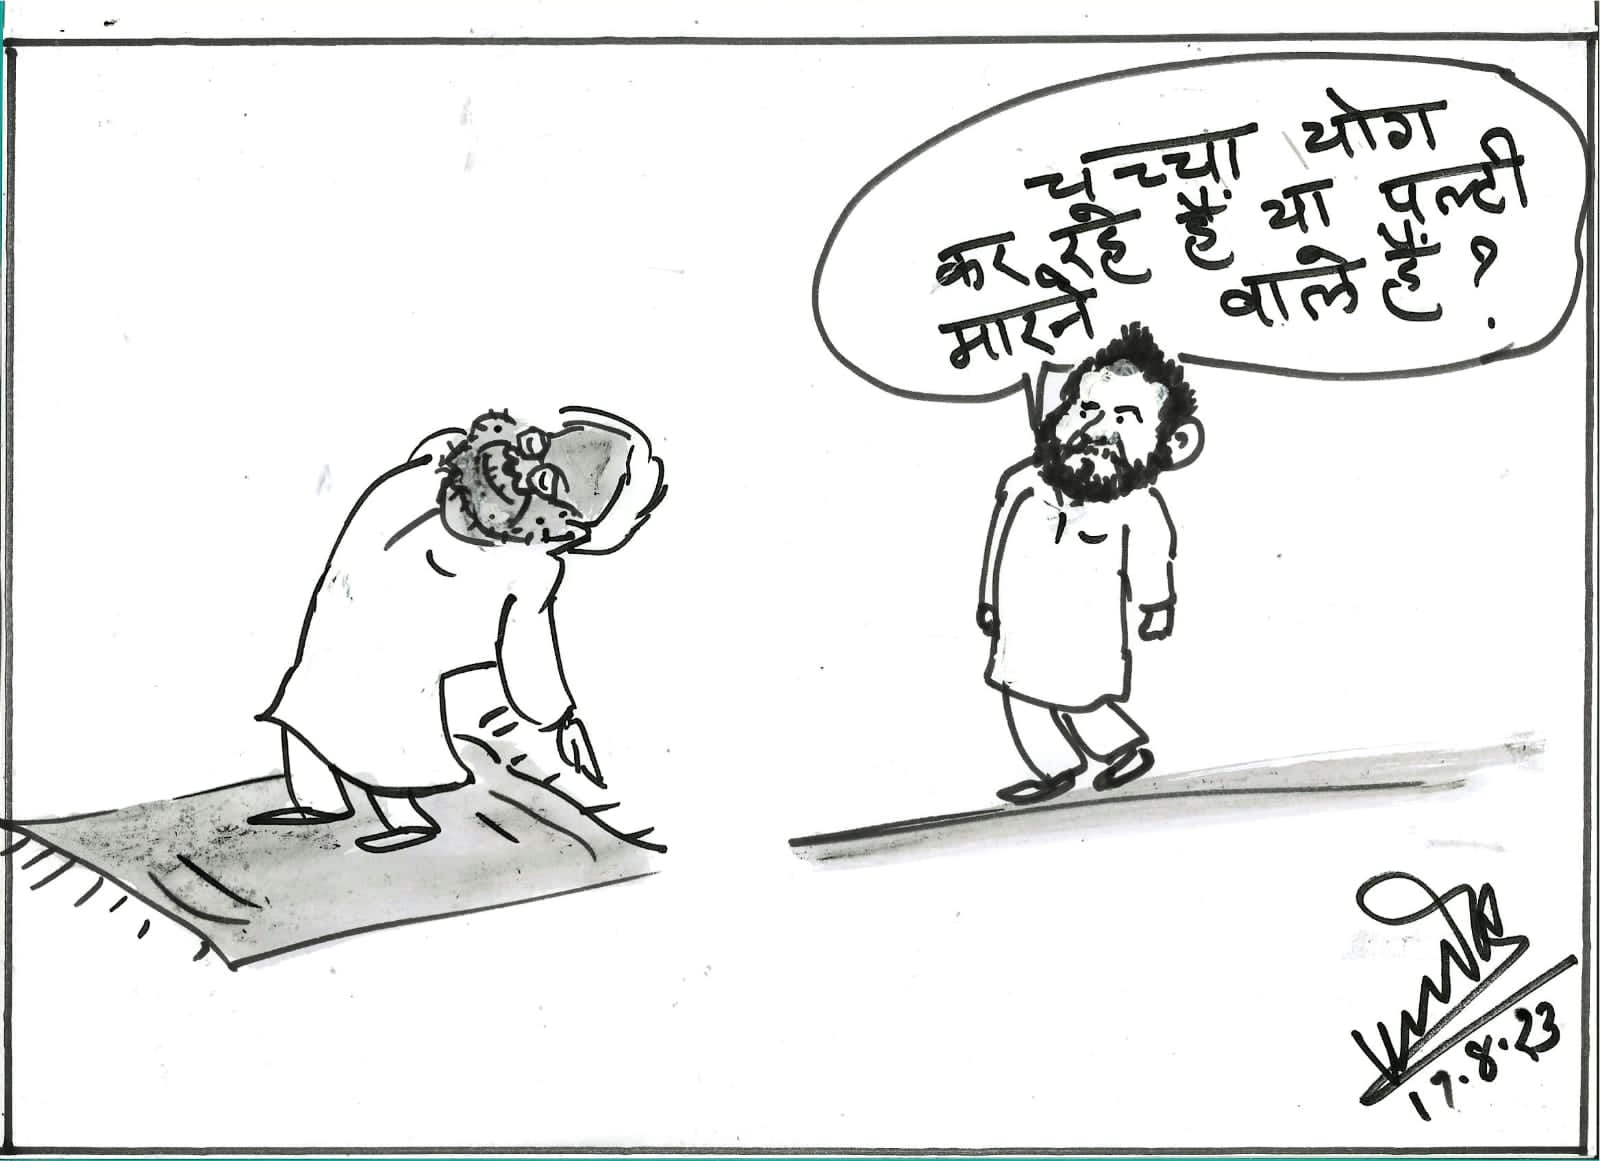 चच्चा योग
कर रहे हैं या पल्टी
मारने वाले हैं ?
17.8.23